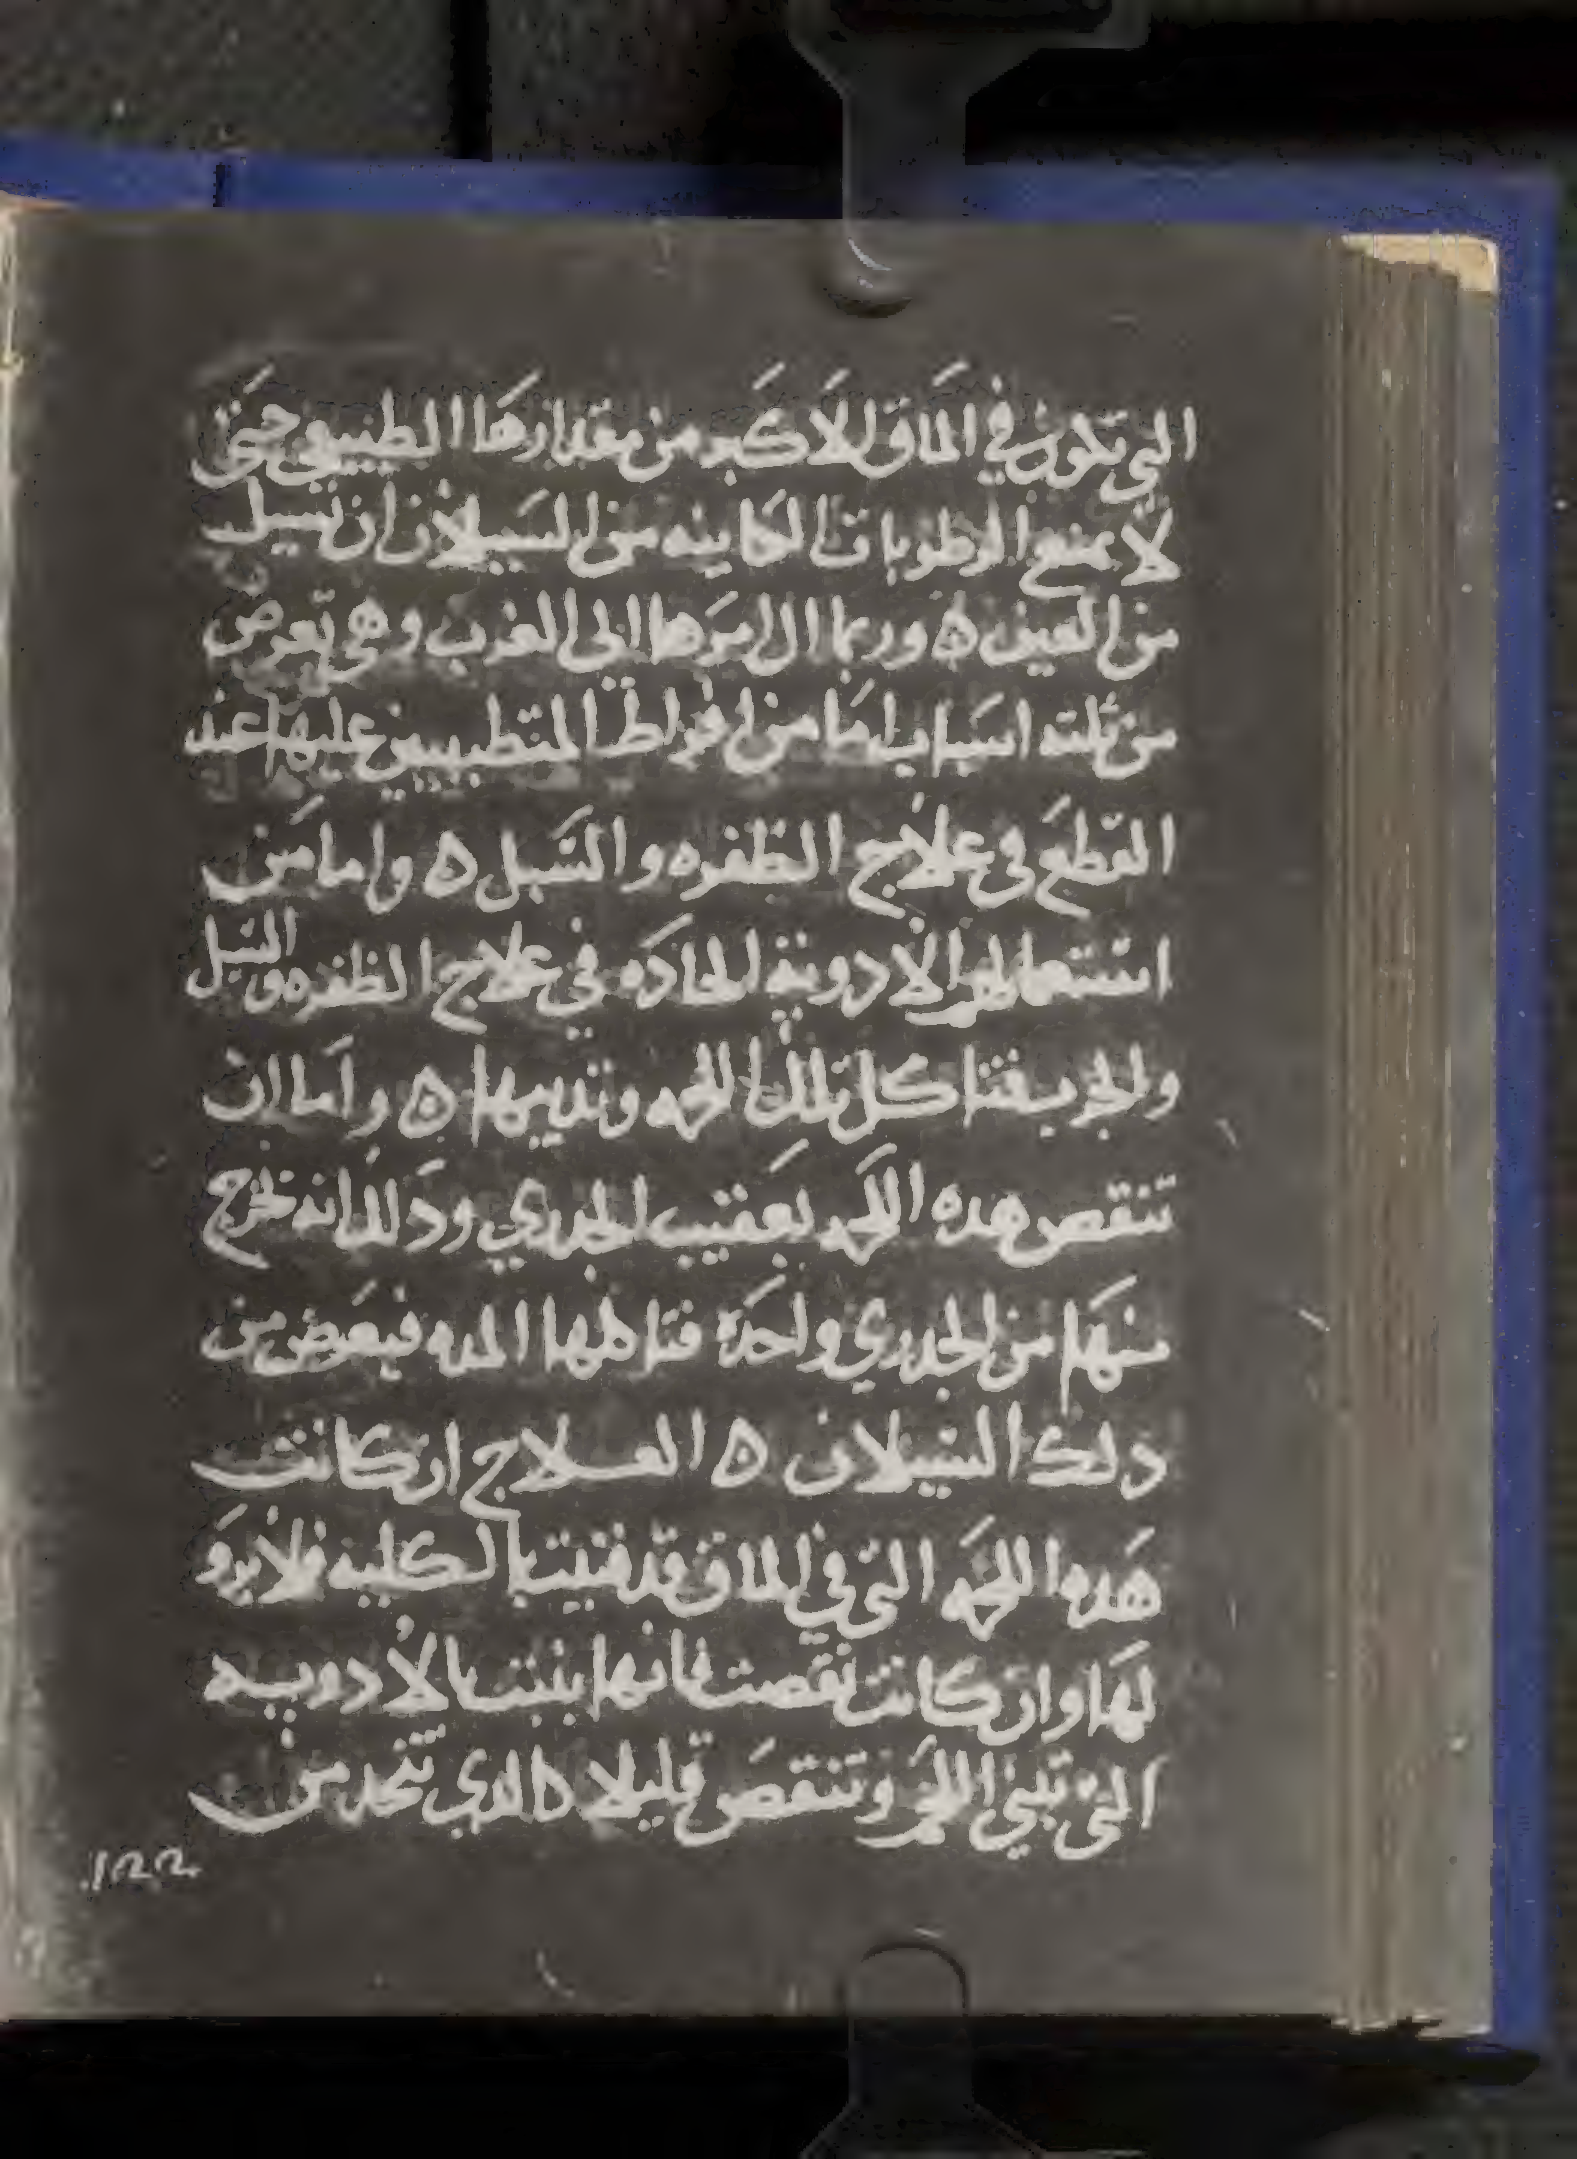 التي تكون في الماق الاكبر من مقدارها الطبيعي حتى
لا تمنع الرطوبات الكاينه من السيلان ان تسيل
من العين ه وربما ال امرها الى الغرب وهي تعرض
من ثلثه اسباب اما من افراط المتطببين عليها عند
القطع في علاج الظفره والسبل ه واما من
استعمالهم الادوية الحاده في علاج الظفره والسبل
والجرب فتاكل تلك اللحمه وتديبها ه واما ان
تنقص هده اللحمه بعقيب الجدري ودلك انه تخرج
منها من الجدري واحدة فتاكلها المده فيعرض من
دلك السيلان ه العلاج ان كانت
هده اللحمه التي في الماق قد فنيت بالكليه فلا برو
لها وان كانت نقصت فانها تنبت بالادويه
التي تبني اللحم وتنقص قليلا ه الدي تتخد من
١٢٢